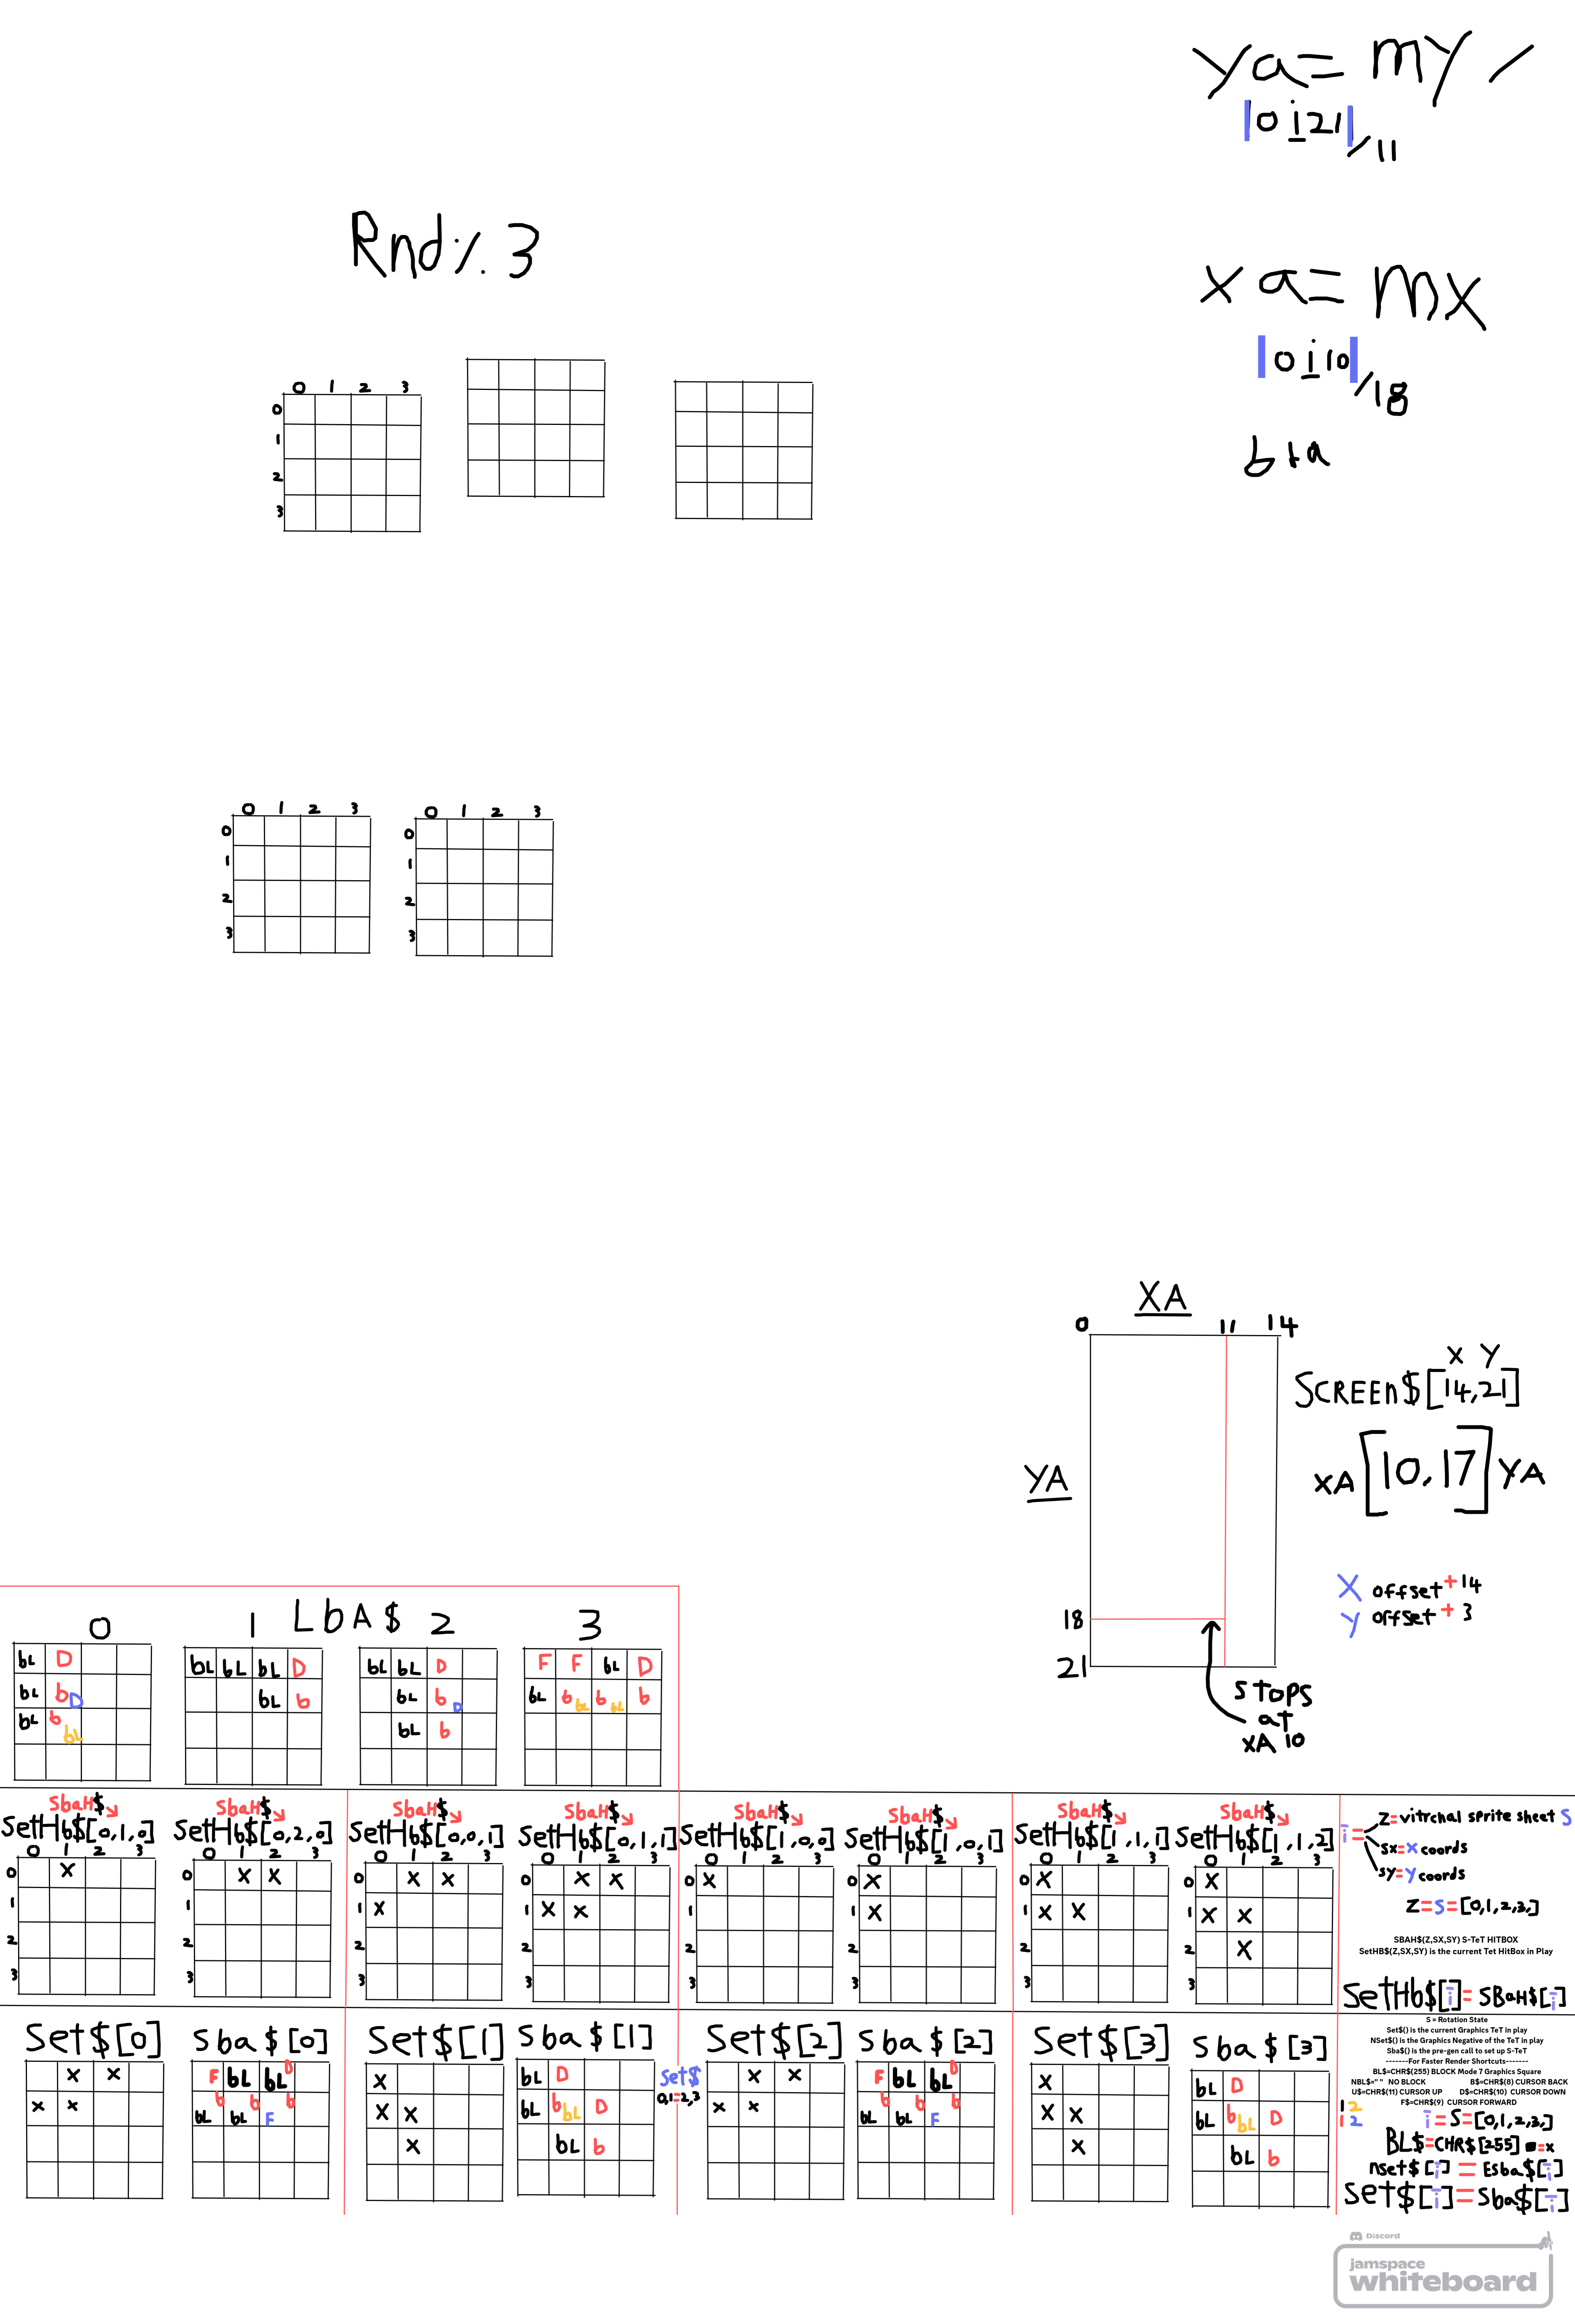 ya= my /
|0 i 21|/11
Rnd % 3
xa= mx
|0 i 10|/18
b+a
0 1 2 3
0
1
2
3
0 1 2 3
0
1
2
3
0 1 2 3
0
1
2
3
XA
0 11 14
X Y
SCREEn$[14,21]
XA [10,17] YA
YA
X offset+14
Y offset+3
18
21
Stops
at
XA 10
LbA$
0 1 2 3
bL D
bL b D
bL b bL
bL bL bL D
bL b
bL bL D
bL b D
bL b
F F bL D
bL b bL b bL b
SbaH$
SetHb$[0,1,0]
0 1 2 3
0 X
1
2
3
SbaH$
SetHb$[0,2,0]
0 1 2 3
0 X X
1
2
3
SbaH$
SetHb$[0,0,1]
0 1 2 3
0 X X
1 X
2
3
SbaH$
SetHb$[0,1,1]
0 1 2 3
0 X X
1 X X
2
3
SbaH$
SetHb$[1,0,0]
0 1 2 3
0 X
1
2
3
SbaH$
SetHb$[1,0,1]
0 1 2 3
0 X
1 X
2
3
SbaH$
SetHb$[1,1,1]
0 1 2 3
0 X
1 X X
2
3
SbaH$
SetHb$[1,1,2]
0 1 2 3
0 X
1 X X
2 X
3
i= Z=vitrchal sprite sheet S
SX=X coords
SY=Y coords
Z=S=[0,1,2,3,]
SBAH$(Z,SX,SY) S-TeT HITBOX
SetHB$(Z,SX,SY) is the current Tet HitBox in Play
SetHb$[i]=SBaH$[i]
Set$[0]
X X
X X
Sba$[0]
F bL bL D
b b b
bL bL F
Set$[1]
X
X X
X
Sba$[1]
bL D
bL b bL D
bL b
Set$
0,1=2,3
Set$[2]
X X
X X
Sba$[2]
F bL bL D
b b b
bL bL F
Set$[3]
X
X X
X
Sba$[3]
bL D
bL b bL D
bL b
S = Rotation State
Set$() is the current Graphics TeT in play
NSet$() is the Graphics Negative of the TeT in play
Sba$() is the pre-gen call to set up S-TeT
-------For Faster Render Shortcuts-------
BL$=CHR$(255) BLOCK Mode 7 Graphics Square
NBL$=" " NO BLOCK B$=CHR$(8) CURSOR BACK
U$=CHR$(11) CURSOR UP D$=CHR$(10) CURSOR DOWN
F$=CHR$(9) CURSOR FORWARD
1 2
1 2
i=S=[0,1,2,3,]
BL$=CHR$[255] ■=x
nset$[i] = Esba$[i]
Set$[i]=Sba$[i]
Discord
jamspace
whiteboard